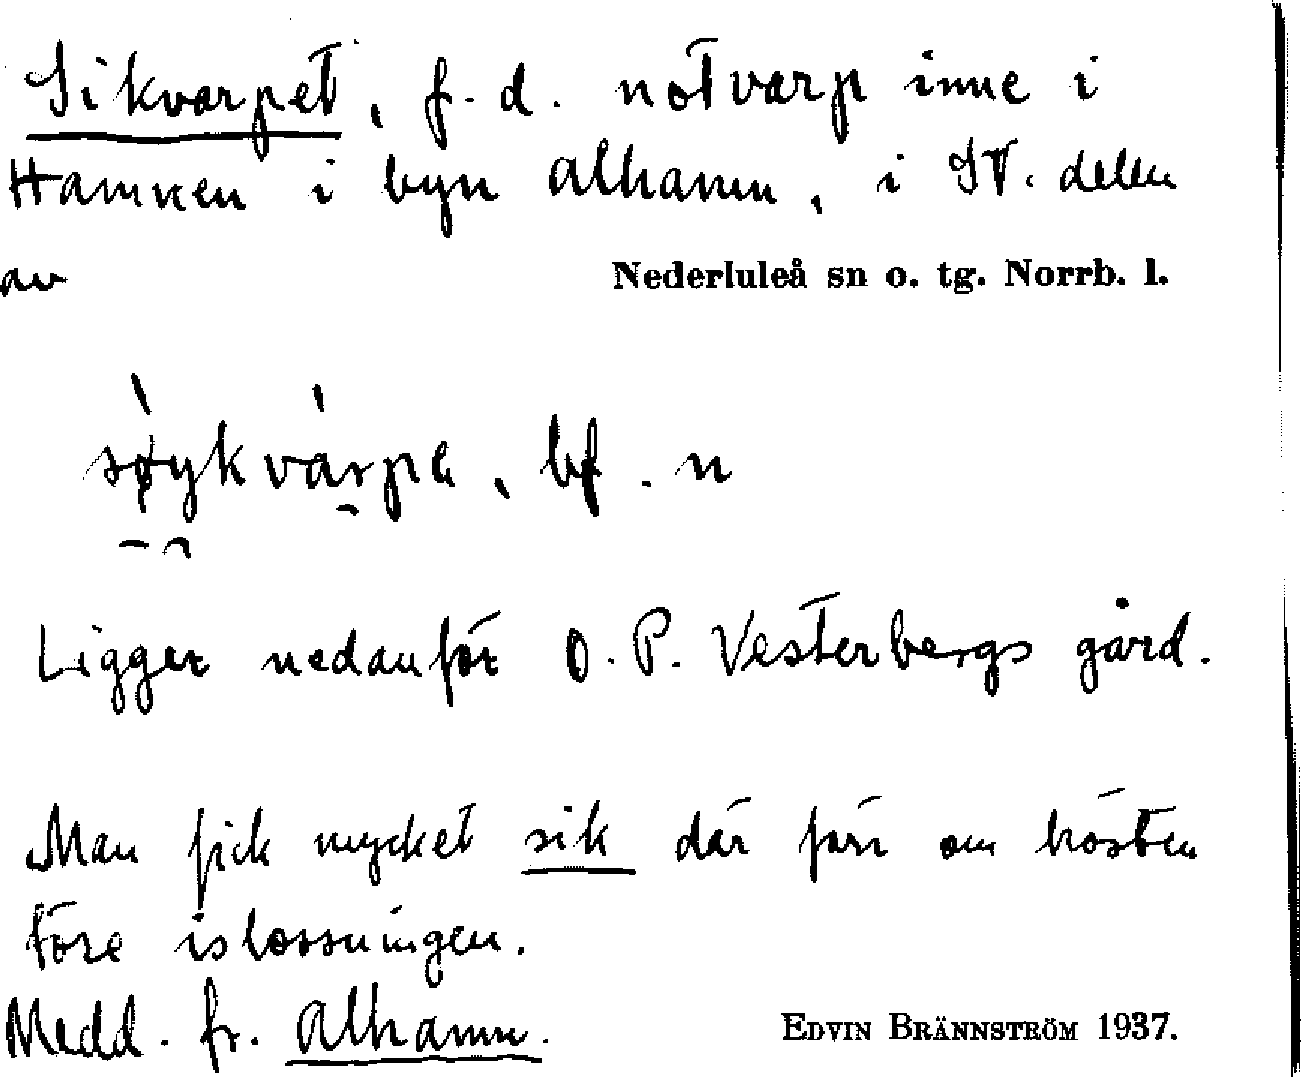 Sikvarpet, f.d. notvarp inne i
Hamnen i byn Alhamn, i SV. delen
av
Nederluleå sn o. tg. Norrb. l.
bf. n
Ligger nedanför O.P. Vesterbergs gård.
Man fick mycket sik där förr om hösten
före islossningen.
Medd. fr. Alhamn.
EDVIN BRÄNNSTRÖM 1937.